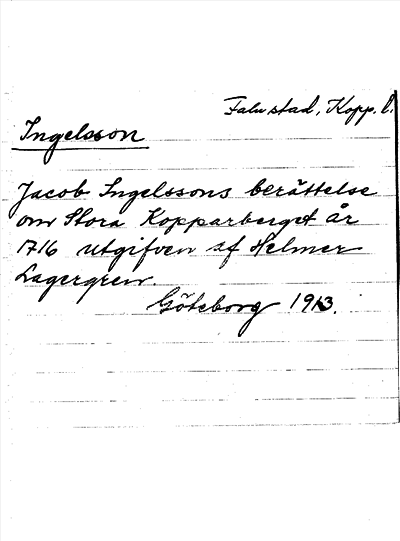 Falu stad, Kopp. l.
Ingelsson
Jacob Ingelssons berättelse
om Stora Kopparberget år
1716 utgifven af Helmer
Lagergren.
Göteborg 1913.